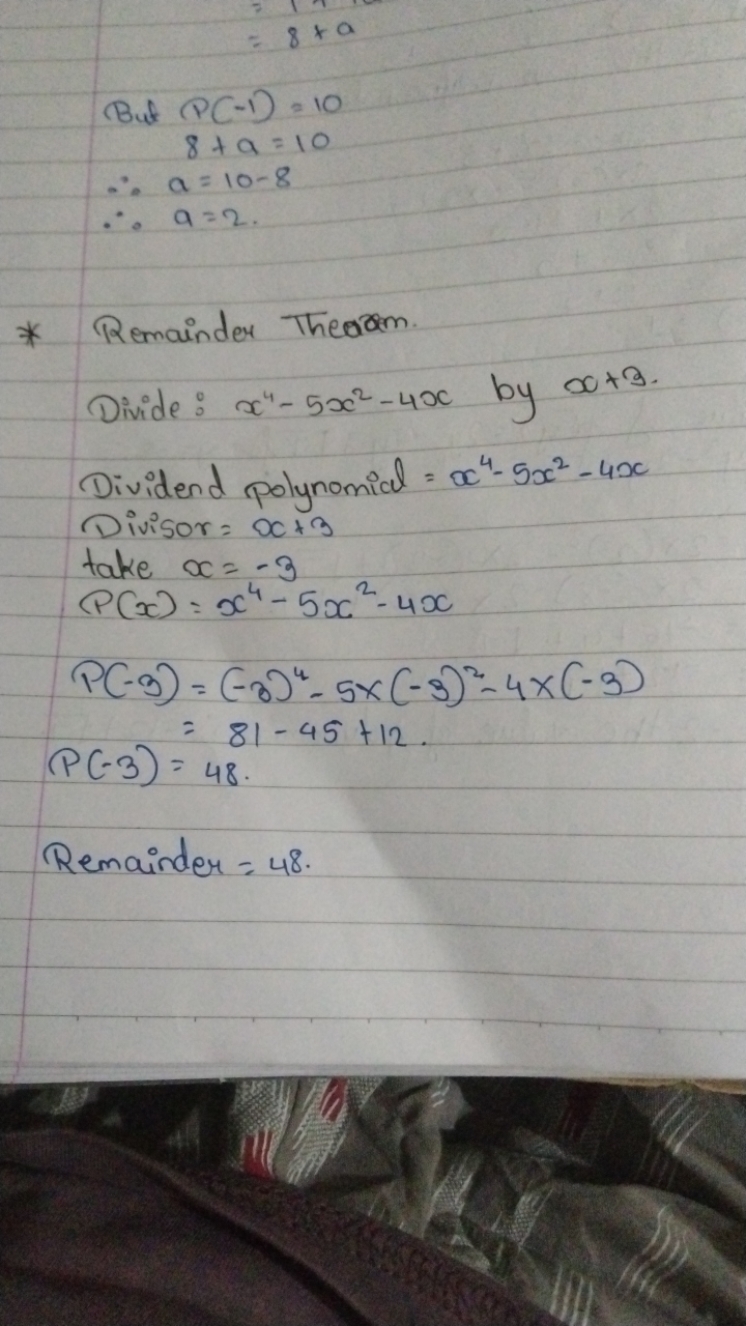 = 8 + a
But P(-1) = 10
8 + a = 10
∴ a = 10-8
∴ a = 2.
* Remainder Theoram.
Divide : x⁴ - 5x² - 4x by x+3.
Dividend polynomial = x⁴ - 5x² - 4x
Divisor = x+3
take x = -3
P(x) = x⁴ - 5x² - 4x
P(-3) = (-3)⁴ - 5×(-3)² - 4×(-3)
= 81 - 45 + 12.
P(-3) = 48.
Remainder = 48.